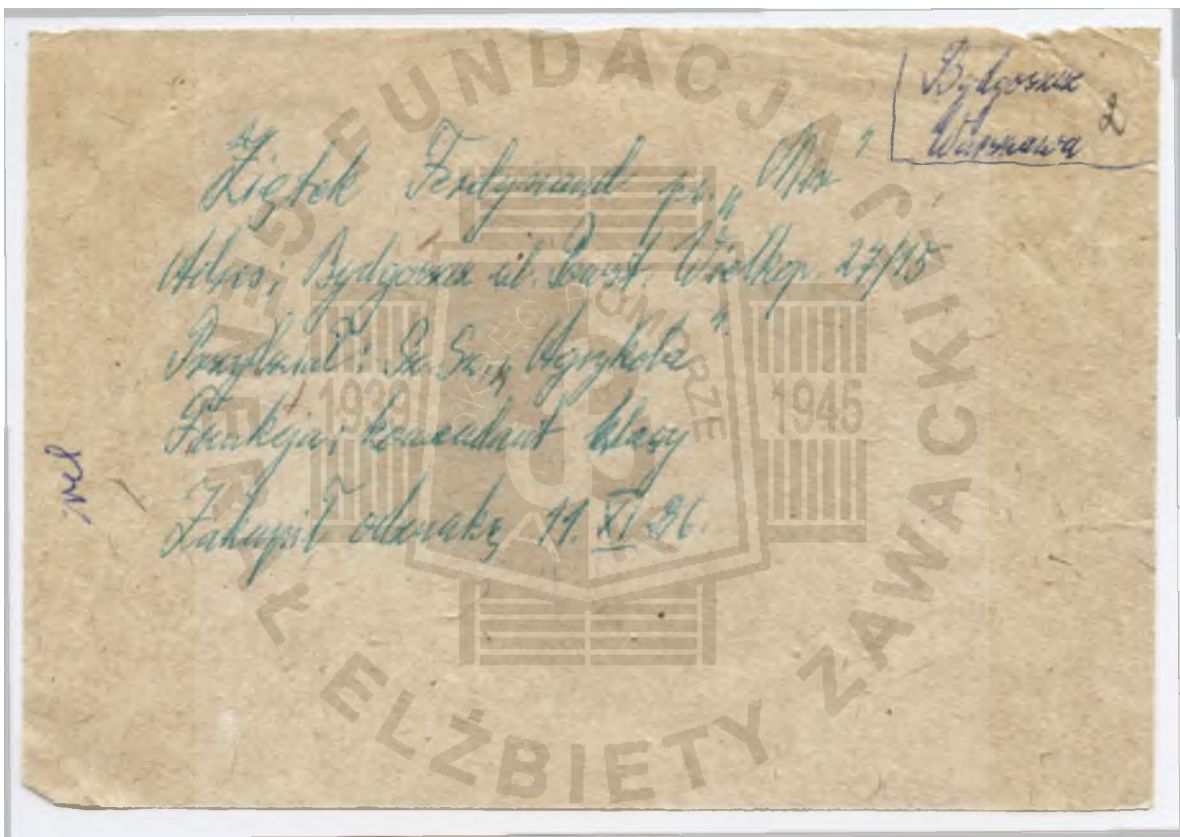 Bydgoszcz
Warszawa 2
Ziętek Ferdynand ps. „
Adres: Bydgoszcz ul. Powst. Wielkop. 27/15
Przydział: Sz. Sz. „Agrykola"
Funkcja: komendant klasy
Zakupił odznakę 11. XI
FUNDACJA GENERAŁ ELŻBIETY ZAWACKIEJ
OKRĘG POMORZE
1939 1945
AK